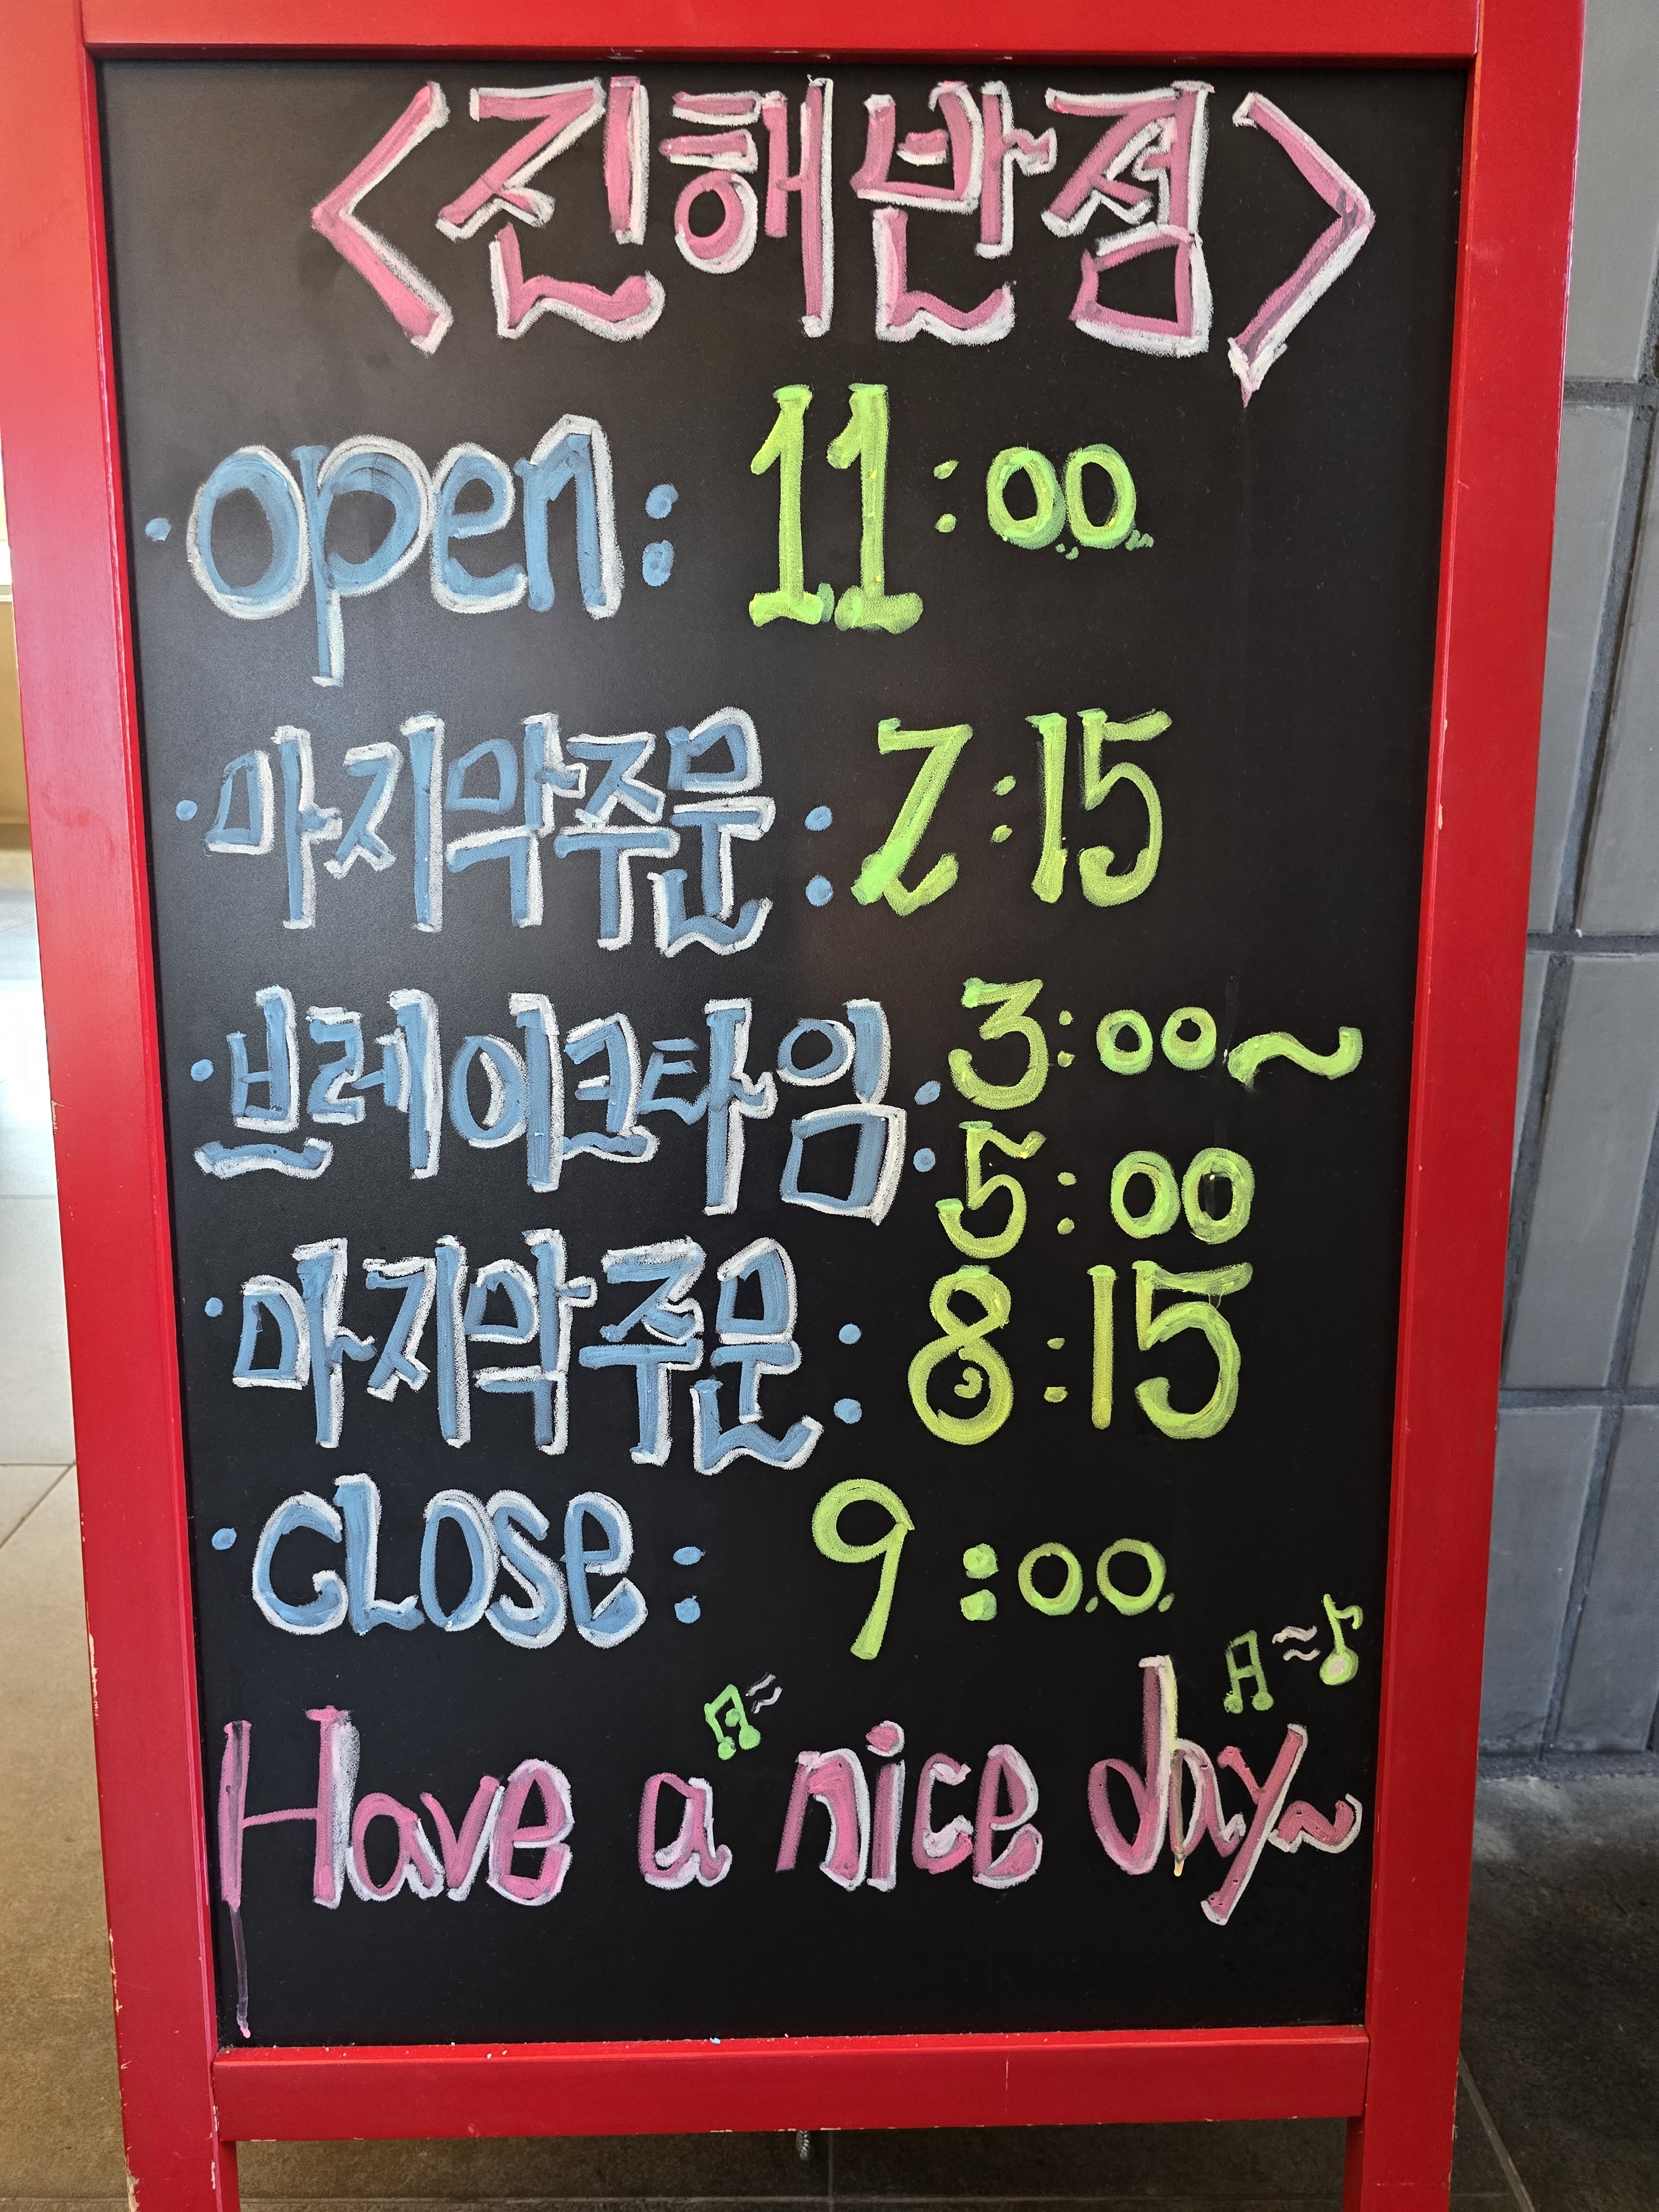 <진해반점>
·open: 11:00
·마지막주문: 2:15
·브레이크타임: 3:00~
5:00
·마지막주문: 8:15
·CLOSe: 9:00
Have a nice day~